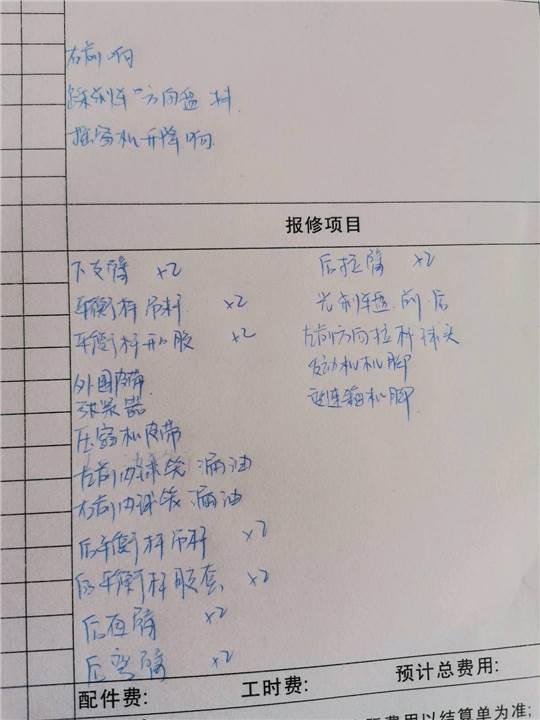 右前响
踩刹车方向盘抖
摇窗机升降响
报修项目
下支臂 x2
平衡杆吊杆 x2
平衡杆开口胶 x2
外围皮带
张紧器
压缩机皮带
左前内球笼漏油
右前内球笼漏油
后平衡杆吊杆 x2
后平衡杆胶套 x2
后直臂 x2
后弯臂 x2
后拉臂 x2
光刹车盘 前 后
左前方向拉杆球头
发动机机脚
变速箱机脚
配件费: 工时费: 预计总费用:
费用以结算单为准;